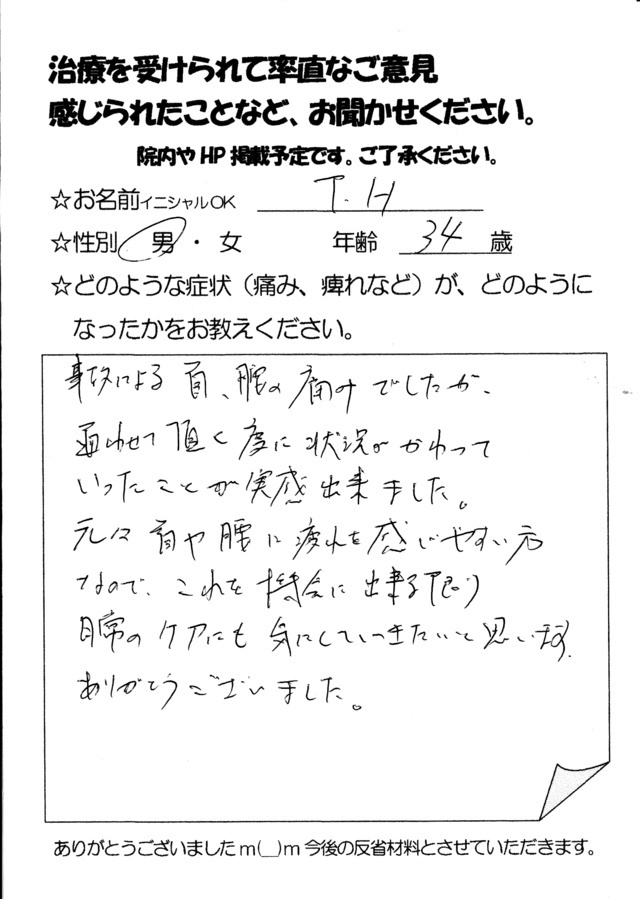 治療を受けられて率直なご意見
感じられたことなど、お聞かせください。
院内やHP掲載予定です。ご了承ください。
☆お名前イニシャルOK T.H
☆性別 男・女 年齢 34 歳
☆どのような症状（痛み、痺れなど）が、どのように
なったかをお教えください。
事故による首、腰の痛みでしたが、
通わせて頂く度に状況がかわって
いったことが実感出来ました。
元々首や腰に疲れを感じやすい方
なので、これを機会に出来る限り
日常のケアにも気にしていきたいと思います。
ありがとうございました。
ありがとうございましたm(__)m今後の反省材料とさせていただきます。